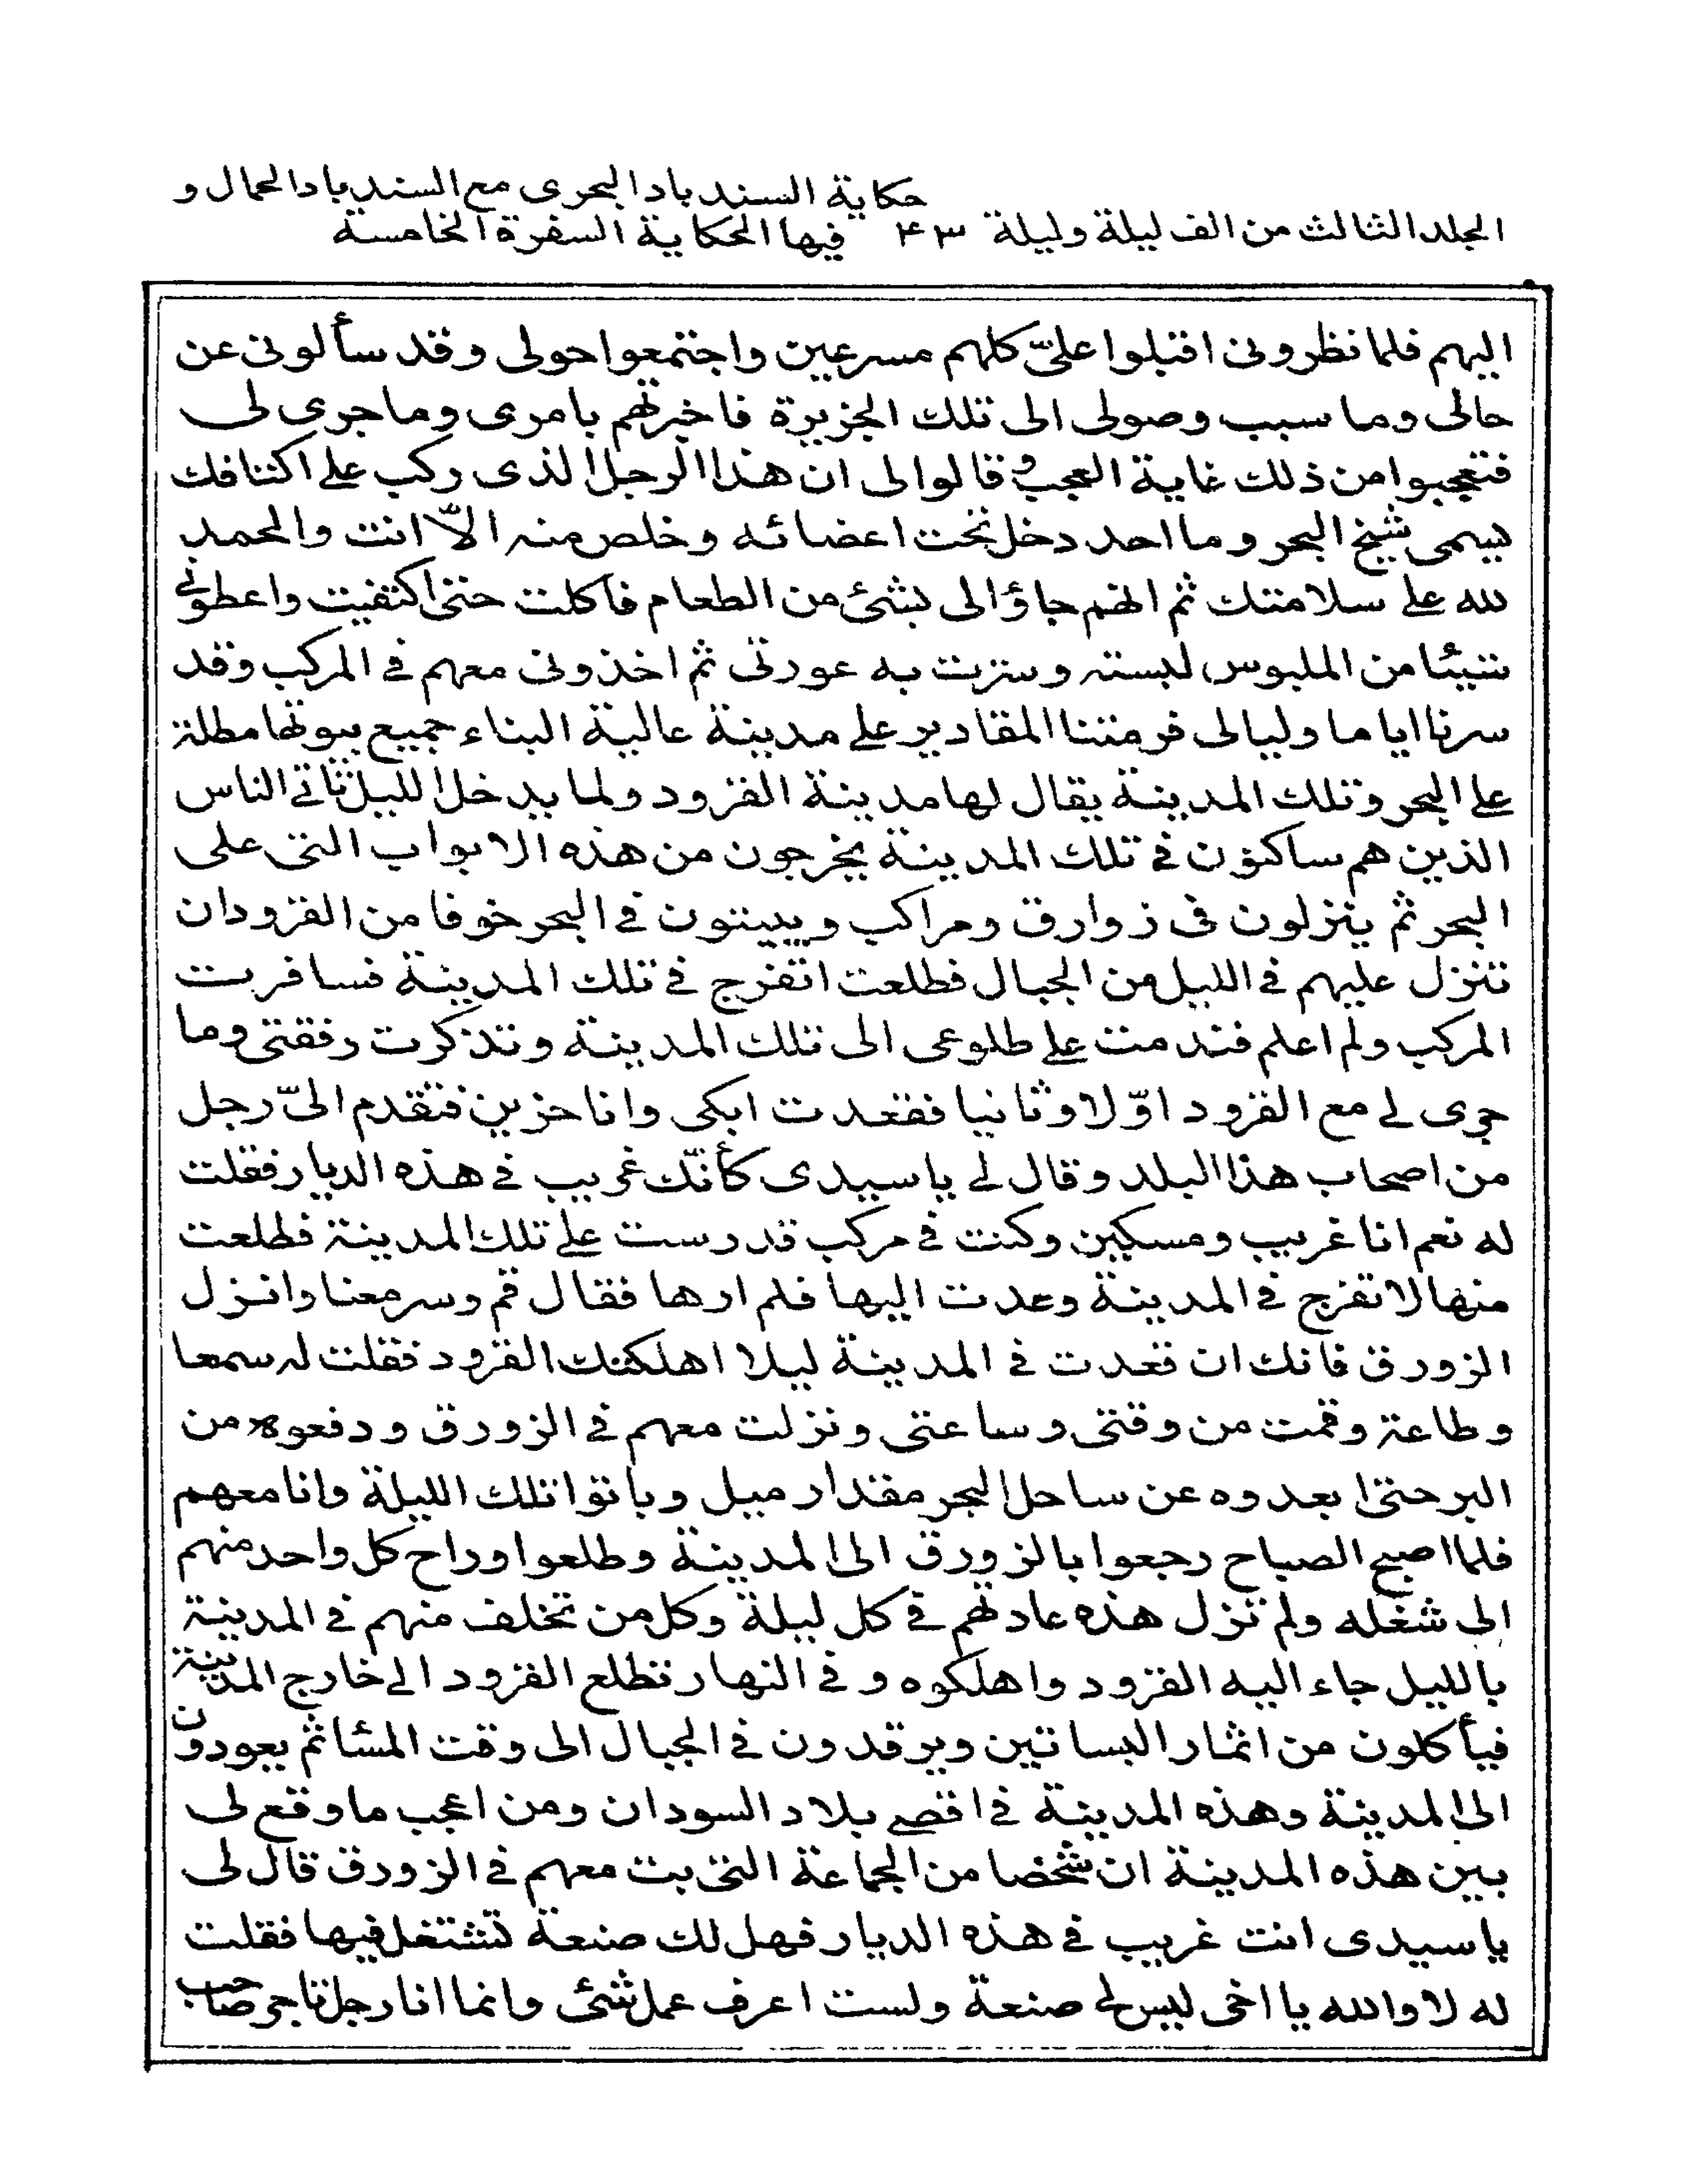 حكاية السندباد البحرى مع السندباد الحمال و
المجلد الثالث من الف ليلة وليلة ۴۳ فيها الحكاية السفرة الخامسة
اليهم فلما نظرونى اقبلوا علىّ كلهم مسرعين واجتمعوا حولى وقد سألونى عن
حالى وما سبب وصولى الى تلك الجزيرة فاخبرتهم بامرى وما جرى لى
فتعجبوا من ذلك غاية العجب و قالوا لى ان هذا الرجل الذى ركب على اكتافك
يسمى شيخ البحر وما احد دخل تحت اعضائه وخلص منه الاّ انت والحمد
لله على سلامتك ثم انهم جاؤالى بشئ من الطعام فاكلت حتى اكتفيت واعطونى
شيئا من الملبوس لبسته وسترت به عورتى ثم اخذونى معهم فى المركب وقد
سرنا اياما وليالى فرمتنا المقادير على مدينة عالية البناء جميع بيوتها مطلة
على البحر وتلك المدينة يقال لها مدينة القرود ولما يدخل الليل تاتى الناس
الذين هم ساكنون فى تلك المدينة يخرجون من هذه الابواب التى على
البحر ثم ينزلون فى زوارق ومراكب ويبيتون فى البحر خوفا من القرود ان
تنزل عليهم فى الليل من الجبال فطلعت اتفرج فى تلك المدينة فسافرت
المركب ولم اعلم فندمت على طلوعى الى تلك المدينة وتذكرت رفقتى وما
جرى لى مع القرود اوّلا وثانيا فقعدت ابكى وانا حزين فتقدم الىّ رجل
من اصحاب هذا البلد وقال لى يا سيدى كأنّك غريب فى هذه الديار فقلت
له نعم انا غريب ومسكين وكنت فى مركب قد رست على تلك المدينة فطلعت
منها لاتفرج فى المدينة وعدت اليها فلم ارها فقال قم وسر معنا وانزل
الزورق فانك ان قعدت فى المدينة ليلا اهلكتك القرود فقلت له سمعا
وطاعة وقمت من وقتى وساعتى ونزلت معهم فى الزورق ودفعوه من
البر حتى ابعدوه عن ساحل البحر مقدار ميل وباتوا تلك الليلة وانا معهم
فلما اصبح الصباح رجعوا بالزورق الى المدينة وطلعوا وراح كل واحد منهم
الى شغله ولم تزل هذه عادتهم فى كل ليلة وكل من تخلف منهم فى المدينة
بالليل جاء اليه القرود واهلكوه و فى النهار تطلع القرود الى خارج المدينة
فيأكلون من اثمار البساتين ويرقدون فى الجبال الى وقت المسًا ثم يعودون
الى المدينة وهذه المدينة فى اقصى بلاد السودان ومن اعجب ما وقع لى
بين هذه المدينة ان شخصا من الجماعة التى بت معهم فى الزورق قال لى
يا سيدى انت غريب فى هذه الديار فهل لك صنعة تشتغل فيها فقلت
له لا والله يا اخى ليس لى صنعة ولست اعرف عمل شئ وانما انا رجل تاجر صاحب